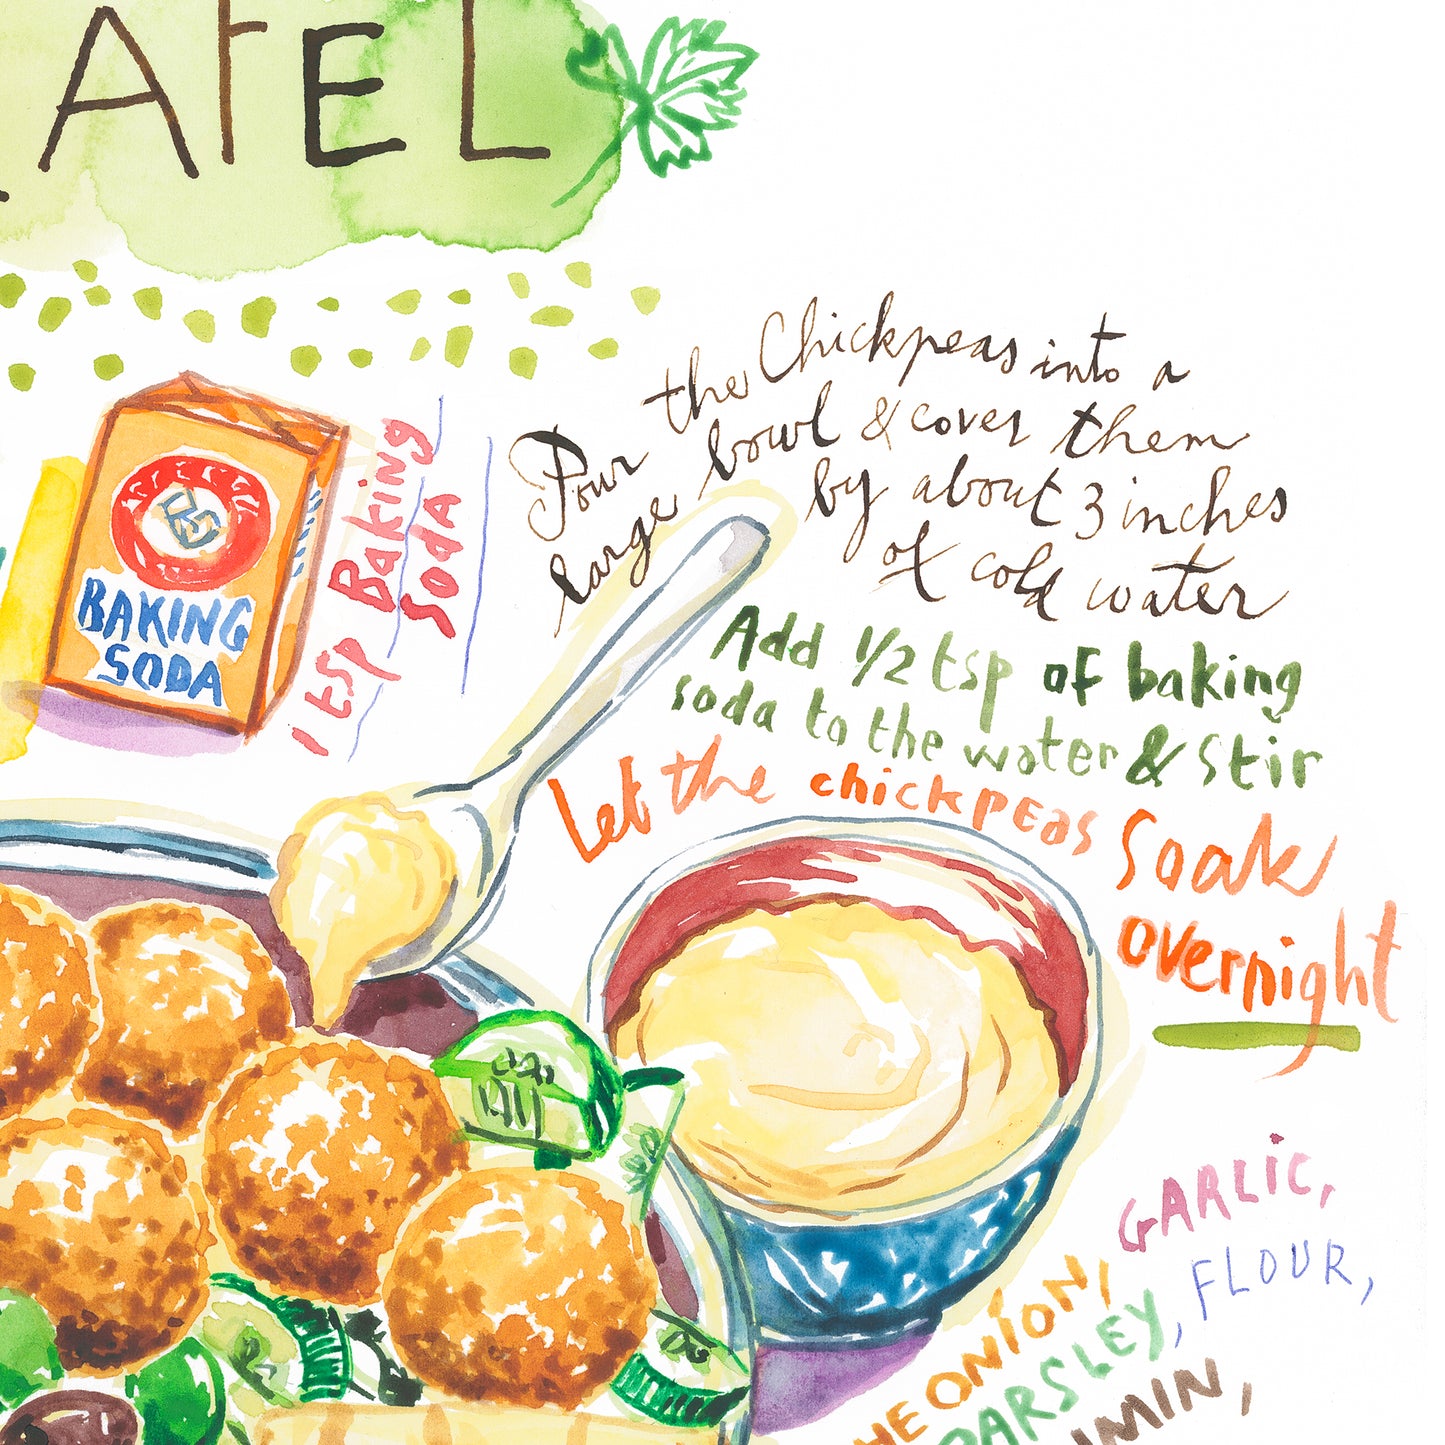 AFEL
BAKING
SODA
1 tsp Baking
Soda
Pour the Chickpeas into a
large bowl & cover them
by about 3 inches
of cold water
Add 1/2 tsp of baking
soda to the water & Stir
Let the chickpeas Soak
overnight
HE ONION, GARLIC,
PARSLEY, FLOUR,
UMIN,